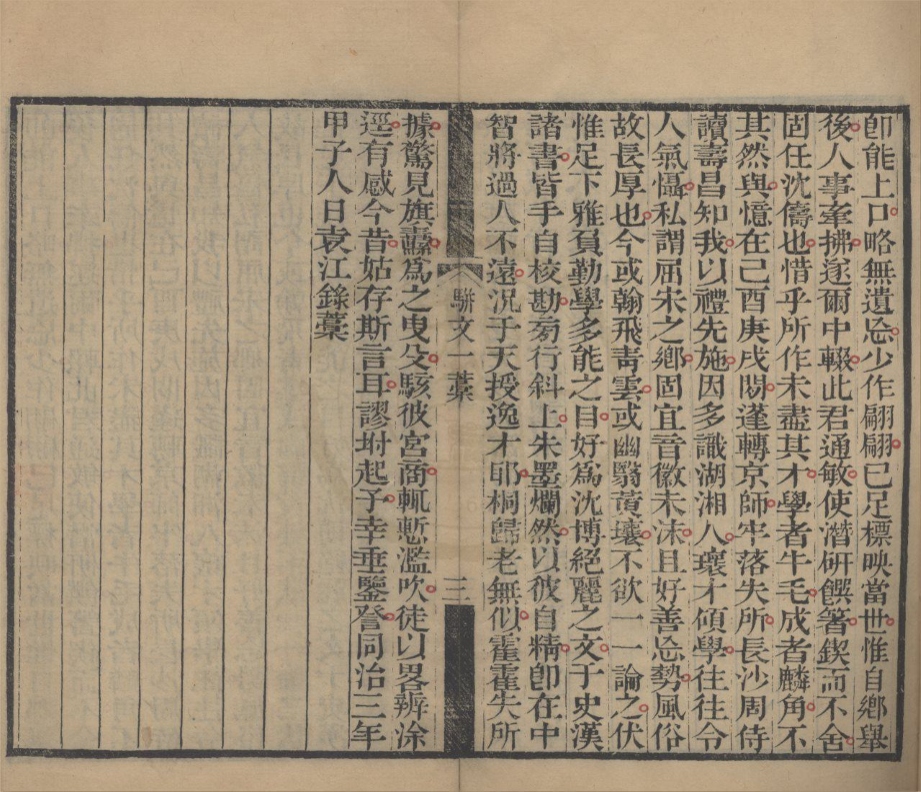 卽能上口略無遺忘少作翩翩已足標映當世惟自鄉舉
後人事牽拂遂爾中輟此君通敏使潛研饌箸鍥而不舍
固任沈儔也惜乎所作未盡其才學者牛毛成者麟角不
其然與憶在己酉庚戌閒蓬轉京師牢落失所長沙周侍
讀壽昌知我以禮先施因多識湖湘人瓌才傾學往往令
人氣懾私謂屈宋之鄉固宜音徽未沬且好善忘勢風俗
故長厚也今或翰飛靑雲或幽翳黃壤不欲一一論之伏
惟足下雅負勤學多能之目好爲沈博絕麗之文于史漢
諸書皆手自校勘旁行斜上朱墨爛然以彼自精卽在中
智將過人不遠況于天授逸才耶桐歸老無似霍霍失所
駢文一藁
三
據驚見旗纛爲之曳殳駭彼宮商輒慙濫吹徒以畧辨涂
逕有感今昔姑存斯言耳謬坿起予幸垂鑒詧同治三年
甲子人日袁江錄藁